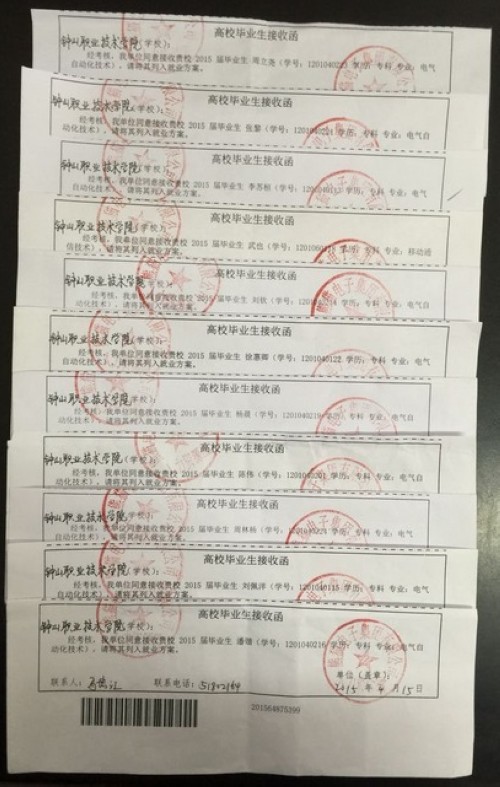 高校毕业生接收函
钟山职业技术学院(学校):
经考核，我单位同意接收贵校 2015 届毕业生 周立尧 (学号: 学历: 专科 专业: 电气
自动化技术)，请将其列入就业方案。
高校毕业生接收函
钟山职业技术学院(学校):
经考核，我单位同意接收贵校 2015 届毕业生 张黎 (学号: 1201040221 学历: 专科 专业: 电气自
动化技术)，请将其列入就业方案。
高校毕业生接收函
钟山职业技术学院(学校):
经考核，我单位同意接收贵校 2015 届毕业生 李苏桓 (学号: 学历: 专科 专业: 电气
自动化技术)，请将其列入就业方案。
高校毕业生接收函
钟山职业技术学院(学校):
经考核，我单位同意接收贵校 2015 届毕业生 武也 (学号: 学历: 专科 专业: 移动通
信技术)，请将其列入就业方案。
高校毕业生接收函
钟山职业技术学院(学校):
经考核，我单位同意接收贵校 2015 届毕业生 刘钦 (学号: 学历: 专科 专业: 电气自
动化技术)，请将其列入就业方案。
高校毕业生接收函
钟山职业技术学院(学校):
经考核，我单位同意接收贵校 2015 届毕业生 徐惠卿 (学号: 1201040122 学历: 专科 专业: 电气
自动化技术)，请将其列入就业方案。
高校毕业生接收函
钟山职业技术学院(学校):
经考核，我单位同意接收贵校 2015 届毕业生 杨 (学号: 1201040219 学历: 专科 专业: 电气自
动化技术)，请将其列入就业方案。
高校毕业生接收函
钟山职业技术学院(学校):
经考核，我单位同意接收贵校 2015 届毕业生 陈伟 (学号: 1201040201 学历: 专科 专业: 电气自
动化技术)，请将其列入就业方案。
高校毕业生接收函
钟山职业技术学院(学校):
经考核，我单位同意接收贵校 2015 届毕业生 周林杨 (学号: 1201040224 学历: 专科 专业: 电气
自动化技术)，请将其列入就业方案。
高校毕业生接收函
钟山职业技术学院(学校):
经考核，我单位同意接收贵校 2015 届毕业生 刘佩洋 (学号: 1201040115 学历: 专科 专业: 电气
自动化技术)，请将其列入就业方案。
高校毕业生接收函
钟山职业技术学院(学校):
经考核，我单位同意接收贵校 2015 届毕业生 潘 (学号: 1201040216 学历: 专科 专业: 电气自
动化技术)，请将其列入就业方案。
单位 (盖章):
联系人: 联系电话: 51802164 2015 年 4 月 15 日
201564875399